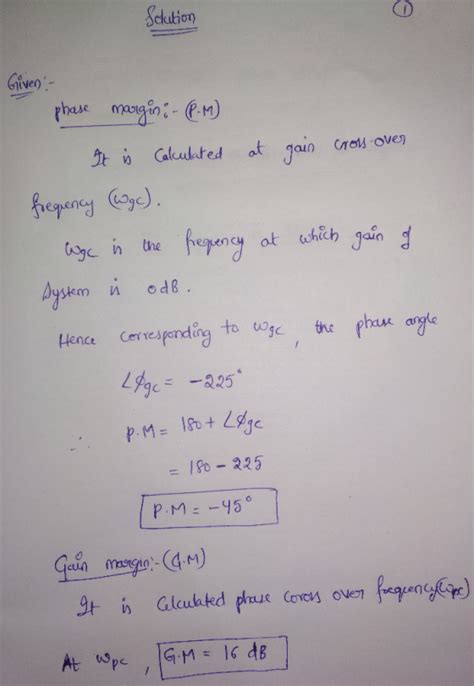 Solution
①
Given:-
phase margin:- (P.M)
It is calculated at gain cross-over
frequency (ωgc).
ωgc is the frequency at which gain of
system is 0dB.
Hence corresponding to ωgc, the phase angle
∠ϕgc = -225°
∴ P.M = 180 + ∠ϕgc
= 180 - 225
P.M = -45°
Gain margin:- (G.M)
It is calculated phase coross over frequency(ωpc)
At ωpc, G.M = 16 dB